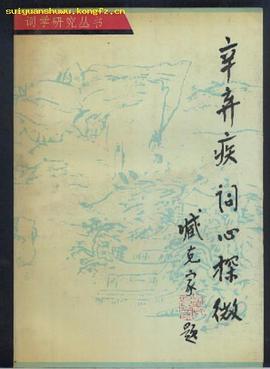 suiyuanshuwu.kongfz.cn
词学研究丛书
辛弃疾词心探微
臧克家题